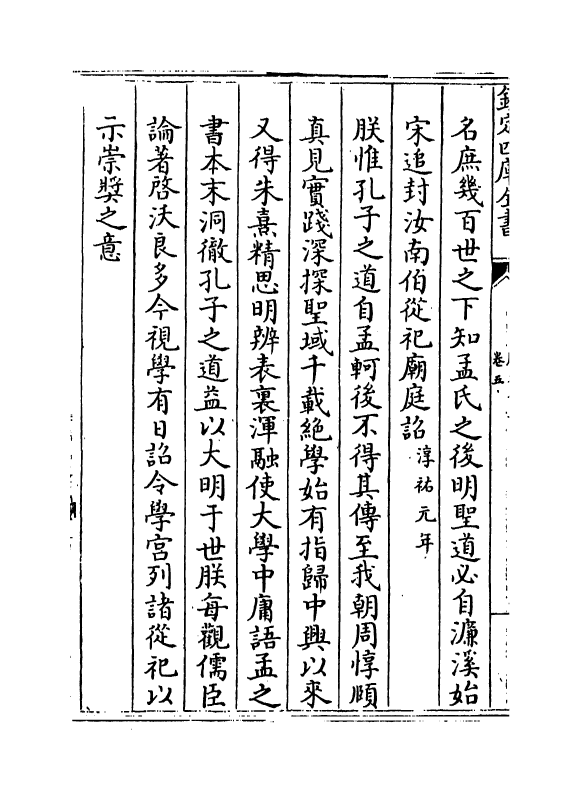 欽定四庫全書
卷五
名庶幾百世之下知孟氏之後明聖道必自濂溪始
宋追封汝南伯從祀廟庭詔淳祐元年
朕惟孔子之道自孟軻後不得其傳至我朝周惇頤
真見實踐深探聖域千載絕學始有指歸中興以來
又得朱熹精思明辨表裏渾融使大學中庸語孟之
書本末洞徹孔子之道益以大明于世朕每觀儒臣
論著啓沃良多今視學有日詔令學宮列諸從祀以
示崇奬之意